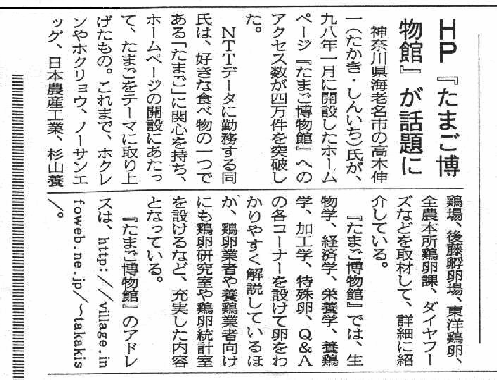 HP『たまご博
物館』が話題に
神奈川県海老名市の高木伸
一(たかぎ・しんいち)氏が、
九八年一月に開設したホーム
ページ『たまご博物館』への
アクセス数が四万件を突破し
た。
NTTデータに勤務する同
氏は、好きな食べ物の一つで
ある「たまご」に関心を持ち、
ホームページの開設にあたっ
て、たまごをテーマに取り上
げたもの。これまで、ホクレ
ンやホクリョウ、ノーサンエ
ッグ、日本農産工業、杉山養
鶏場、後藤孵卵場、東洋鶏卵、
全農本所鶏卵課、ダイヤフー
ズなどを取材して、詳細に紹
介している。
『たまご博物館』では、生
物学、経済学、栄養学、養鶏
学、加工学、特殊卵、Q&A
の各コーナーを設けて卵をわ
かりやすく解説しているほ
か、鶏卵業者や養鶏業者向け
にも鶏卵研究室や鶏卵統計室
を設けるなど、充実した内容
となっている。
『たまご博物館』のアドレ
スは、http://village.in
foweb.ne.jp/~takakis
/。